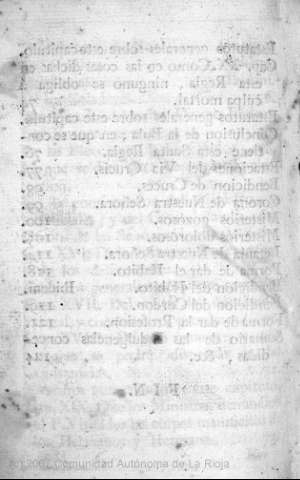 Estatutos generales sobre este capitulo.
Cap. XX. Como en las cosas dichas en
esta Regla, ninguno se obliga à
culpa mortal. 74
Estatutos generales sobre este capitulo
Conclusion de la Bula, en que se con-
tiene esta Santa Regla. 76.
Estaciones del Via Crucis. 77.
Bendicion de Cruces.
Corona de Nuestra Señora.
Misterios gozosos. 100
Misterios dolorosos.
Letania de Nuestra Señora.
Forma de dar el Habito. 118.
Bendicion del Habito. Ibidem.
Bendicion del Cordon.
Forma de dar la Profesion. 121.
Sumario de las Indulgencias conce-
didas, &c. 124
FIN.
(c) 2007 Comunidad Autónoma de La Rioja